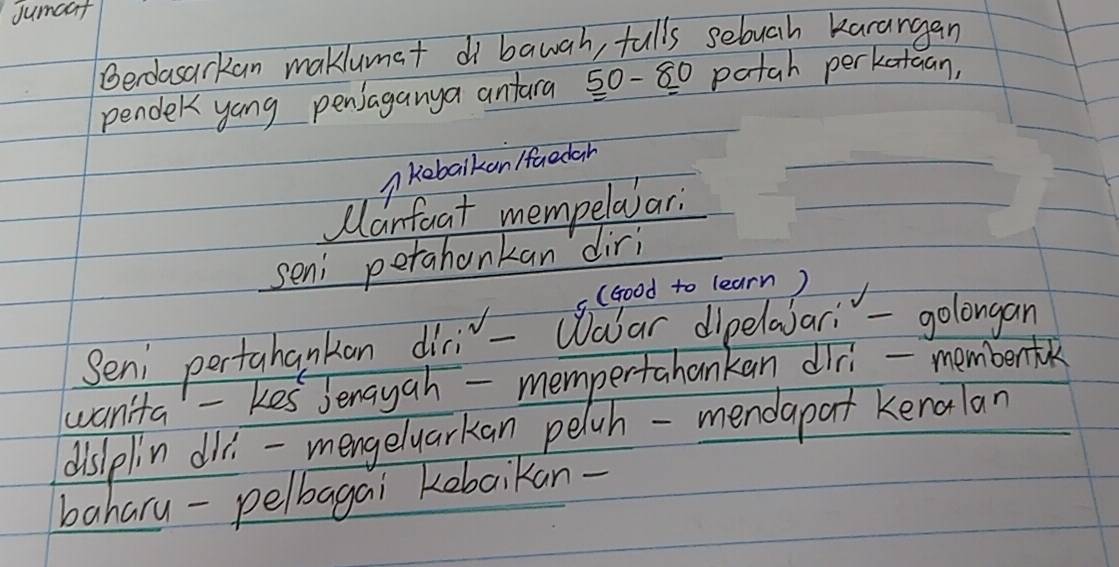 Jumaat
Berdasarkan maklumat di bawah, tulis sebuah karangan
pendek yang penjaganya antara 50-80 patah perkataan,
↑ kebaikan/faedah
Manfaat mempelajari
seni petahankan diri
(Good to learn)
Seni pertahankan diri ✓ - Wajar dipelajari ✓ - golongan
wanita - kes jenayah - mempertahankan diri - membentuk
disiplin diri - mengeluarkan peluh - mendapat kenalan
baharu - pelbagai kebaikan -